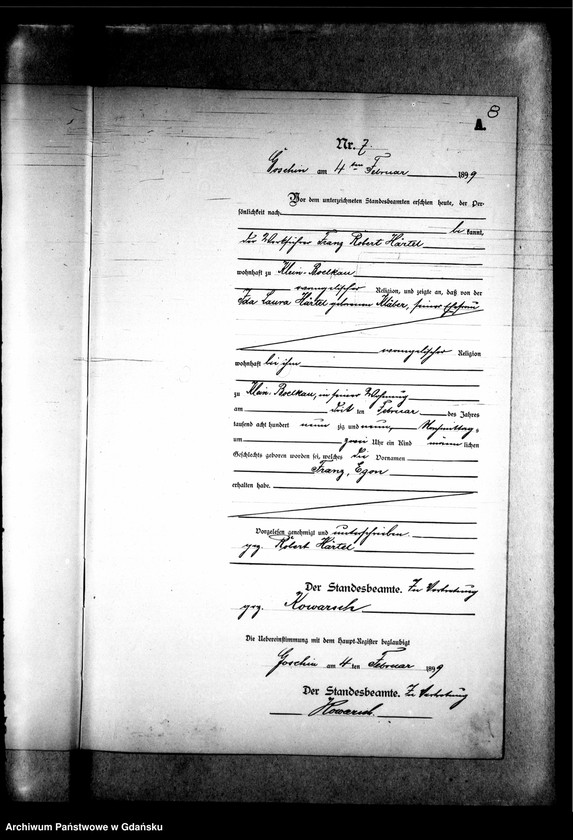 8
A.
Nr. 7.
Goschin am 4 ten Februar 1899
Vor dem unterzeichneten Standesbeamten erschien heute, der Per-
sönlichkeit nach
be kannt,
der Franz Robert Härtel
wohnhaft zu Klein-Boelkau
evangelischer Religion, und zeigte an, daß von der
Ida Laura Härtel geborenen Kläber, seiner Ehefrau
evangelischer Religion
wohnhaft bei ihm
zu Klein-Boelkau, in seiner Wohnung
am drit ten Februar des Jahres
tausend acht hundert neun zig und neun, Nachmittag s
um zwei Uhr ein Kind männ lichen
Geschlechts geboren worden sei, welches die Vornamen
Franz, Egon
erhalten habe.
Vorgelesen genehmigt und unterschrieben.
gez. Robert Härtel
Der Standesbeamte. In Vertretung
gez. Kowarsch
Die Uebereinstimmung mit dem Haupt-Register beglaubigt
Goschin am 4 ten Februar 1899
Der Standesbeamte. In Vertretung
Kowarsch
Archiwum Państwowe w Gdańsku